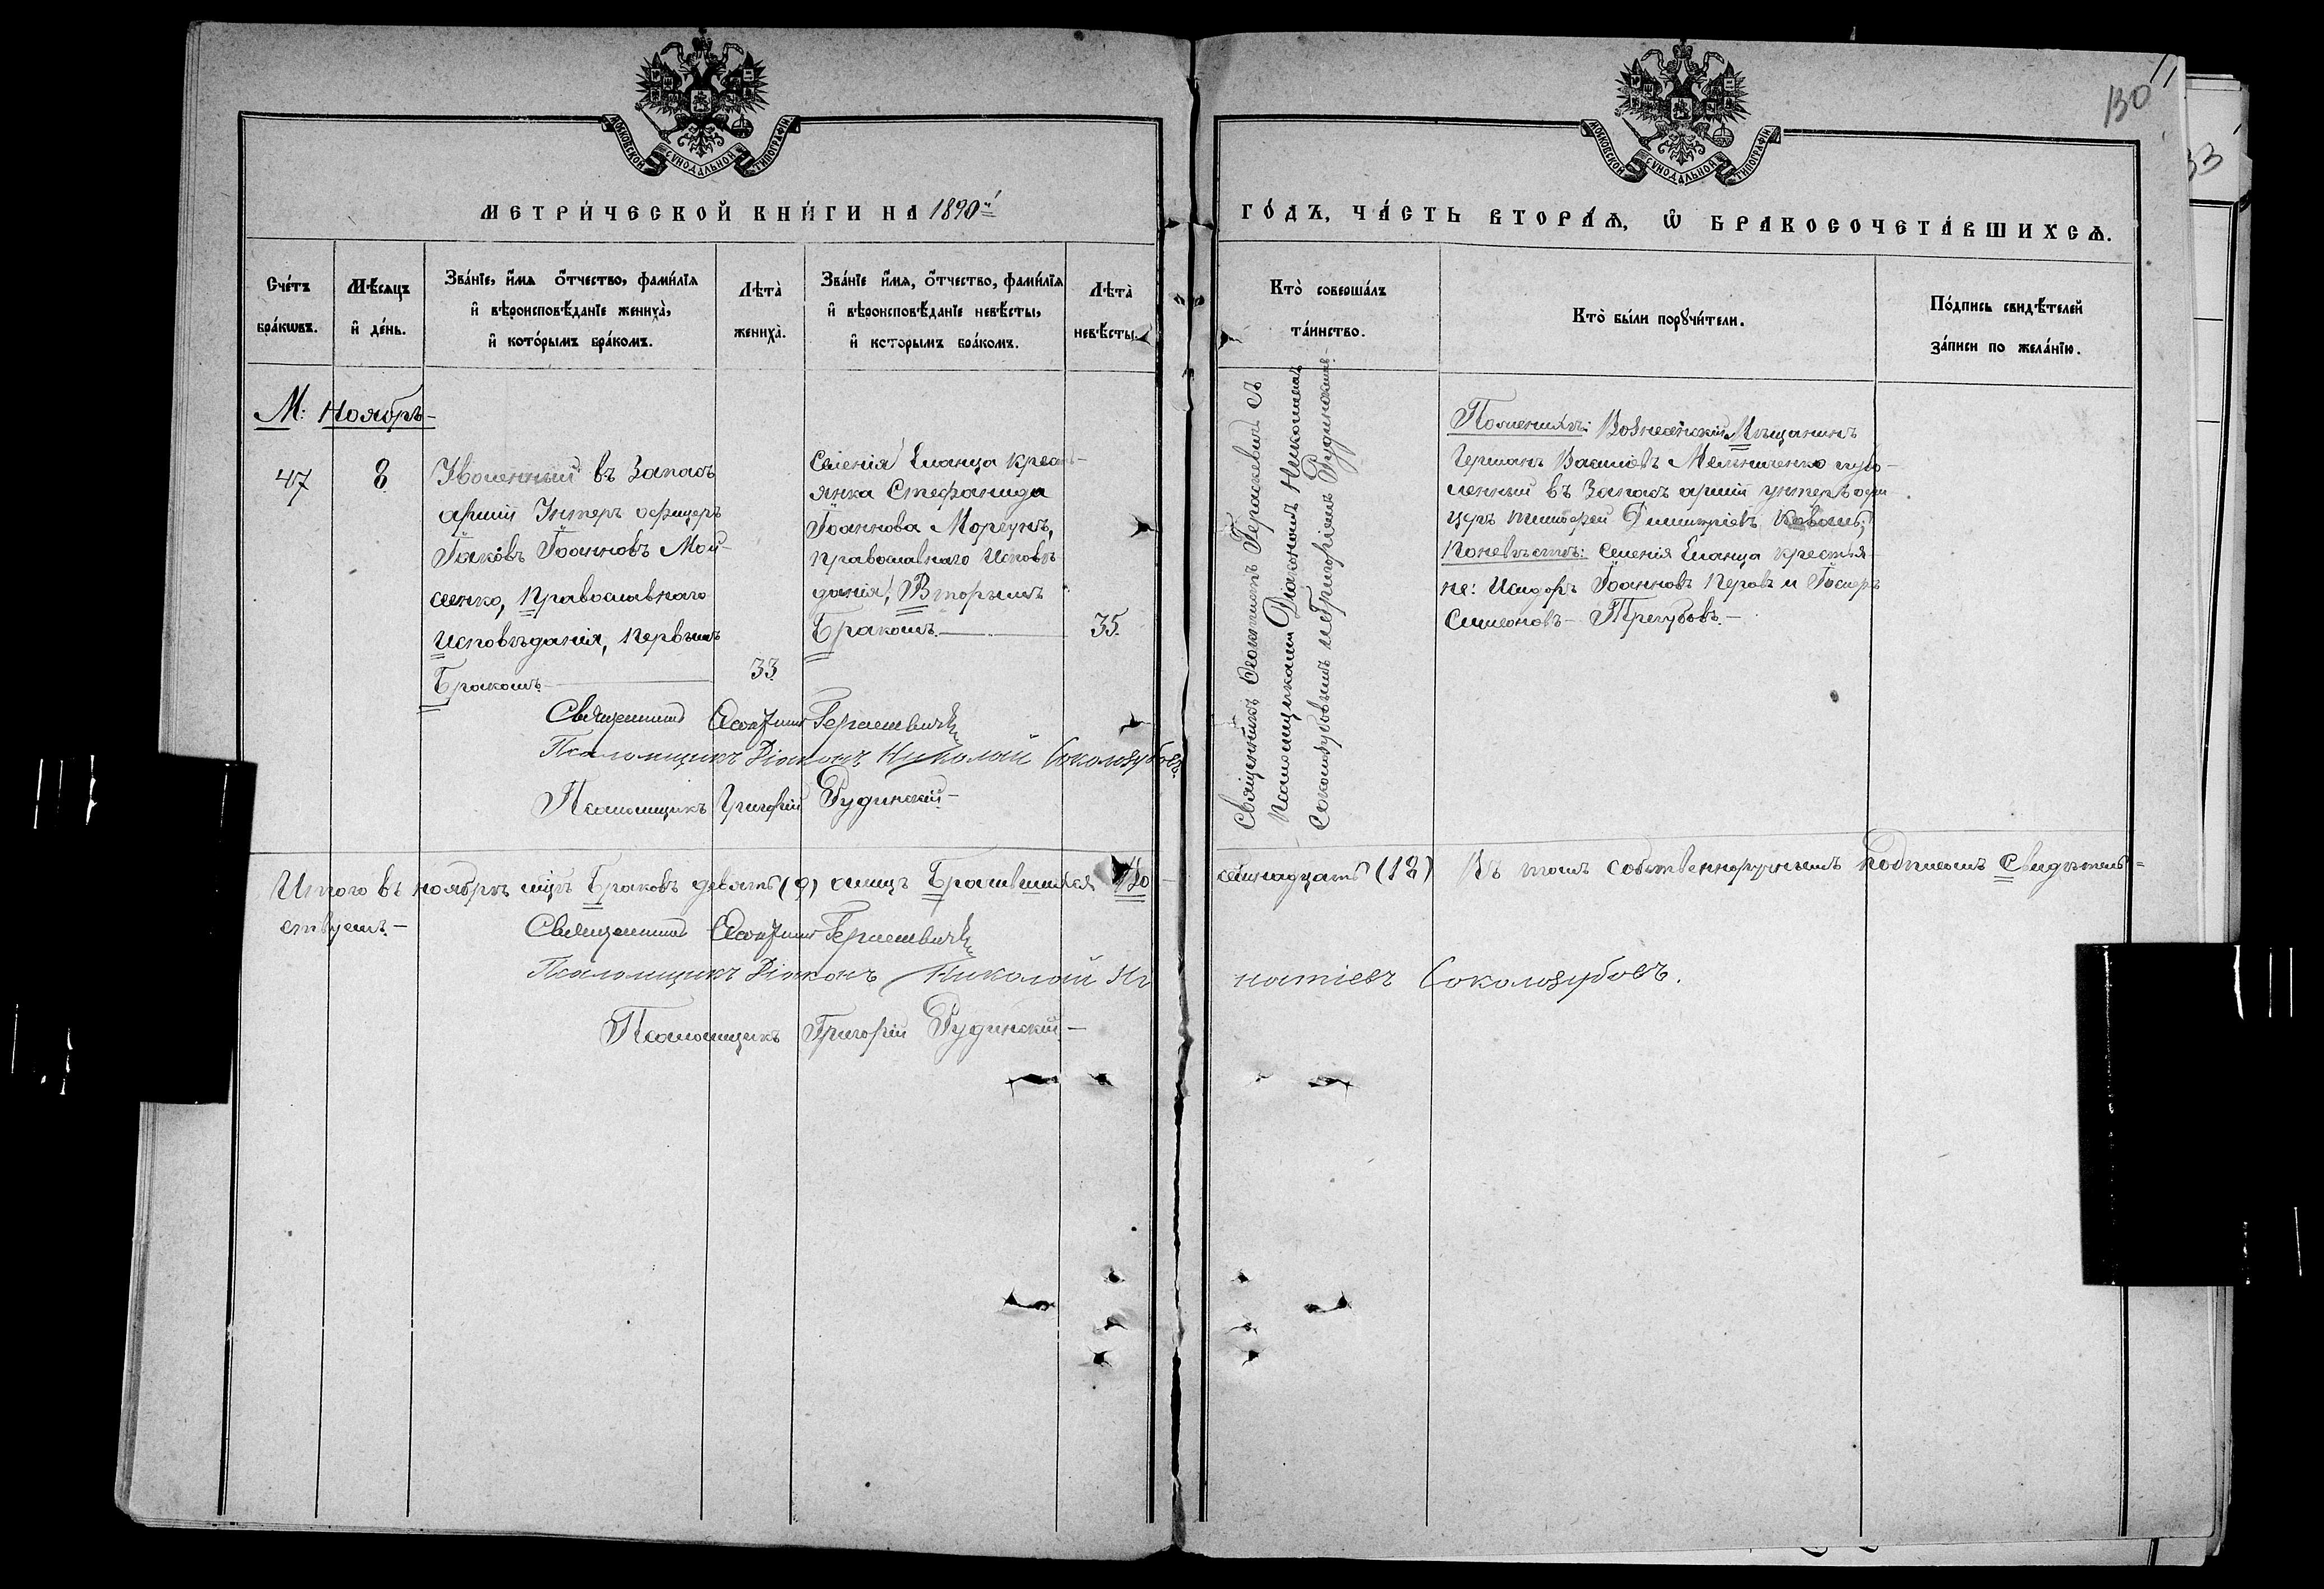 130
33
МОСКОВСКОЙ СѴНОДАЛЬНОЙ ТИПОГРАФІИ
МОСКОВСКОЙ СѴНОДАЛЬНОЙ ТИПОГРАФІИ
МЕТРИ́ЧЕСКОЙ КНИ́ГИ НА 1890й
ГО́ДЪ, ЧА́СТЬ ВТОРА́Ѧ, Ѽ БРАКОСОЧЕТА́ВШИХСѦ.
Сче́тъ
бра́кѡвъ.
Мѣ́сяцъ
и҆ де́нь.
Зва́нїе, и҆́мя ѻ҆́тчество, фами́лїя
и҆ вѣроисповѣ́данїе жениха̀,
и҆ кото́рымъ бра́комъ.
Лѣта̀
жениха̀.
Зва́нїе и҆́мя, ѻ҆́тчество, фами́лїя
и҆ вѣроисповѣ́данїе невѣ́сты,
и҆ которымъ бра́комъ.
Лѣта̀
невѣ́сты.
Кто̀ соверша́лъ
та́инство.
Кто̀ бы́ли порꙋчи́тели.
По́дпись свидѣ́телей
за́писи по жела́нїю.
М: Ноябрь-
47
8
Уволенный въ Запасъ
арміи Унтеръ офицеръ
Іаковъ Іоанновъ Мой-
сенко, православнаго
исповѣданія, первымъ
Бракомъ.
33
Селенія Еланца крест-
янка Стефанида
Іоаннова Моргунъ,
православнаго Исповѣ
данія, Вторымъ
Бракомъ.
35.
Священникъ Ѳеоктистъ Гераскевичъ съ
Псаломщиками Діакономъ Николаемъ
Соколозубовымъ и Григоріемъ Рудинскимъ.-
Поженихѣ: Вознесенскій Мѣщанинъ
Германъ Василіевъ Мельниченко и уво-
ленный въ Запасъ арміи унтеръ офи
церъ Тимоѳей Димитріевъ Коваль;
Поневѣстѣ: селенія Еланца крестья-
не: Исидоръ Іоанновъ Перовъ и
Симеоновъ Трегубовъ.-
Священникъ Гераскевичъ
Псаломщикъ Діаконъ Николай Соколозубовъ
Псаломщикъ Григорій Рудинскій-
Итого въ ноябрѣ мцѣ Браковъ девять (9) а лицъ Брачившихся Во-
семнадцать (18) Въ томъ собственноручнымъ подписомъ Свидѣтель=
ствуемъ.-
Священникъ Гераскевичъ
Псаломщикъ Діаконъ Николай Иг
натіевъ Соколозубовъ.
Псаломщикъ Григорій Рудинскій-